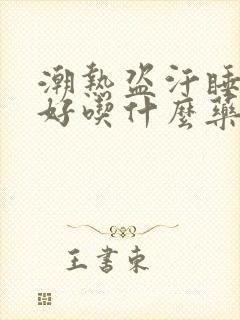 潮熱盗汗睡
好喫什麼藥
王書東